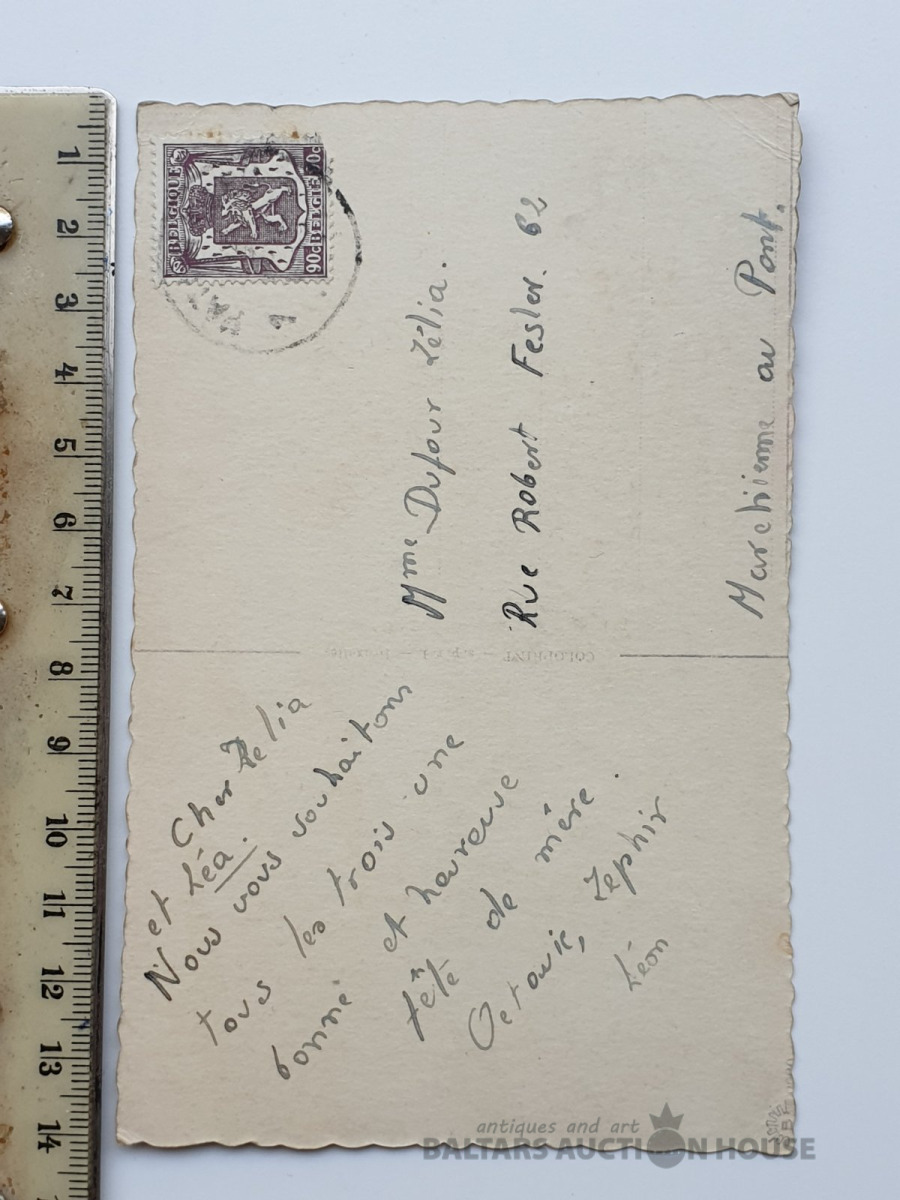 1
2
3
4
5
6
7
8
9
10
11
12
13
14
BELGIQUE
BELGIE
90c
90c
Mme Dufour Zélia.
Rue Robert Fesler. 62
Marchienne au Pont.
COLOPRINT
Cher Zelia
et Léa.
Nous vous souhaitons
tous les trois une
bonne et heureuse
fête de mère.
Octavie, Zephir
Léon
antiques and art
BALTARS AUCTION HOUSE